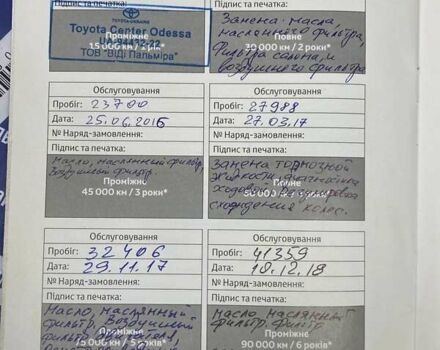 Підпис та печатка:
TOYOTA-UKRAINE
Toyota Center Odessa
ТОВ "ВІДІ Пальміра"
Проміжне
15 000 км / 1 рік*
Підпис та печатка:
Замена масла
масленного фильтра,
Фильтра салона, и
воздушного фильтра
Повне
30 000 км / 2 роки*
Обслуговування
Пробіг: 23700
Дата: 25.06.2016
№ Наряд-замовлення:
Підпис та печатка:
масло, маслянный фильтр,
Воздушный фильтр.
Проміжне
45 000 км / 3 роки*
Обслуговування
Пробіг: 27988
Дата: 27.03.17
№ Наряд-замовлення:
Підпис та печатка:
Замена тормозной
жидкости, диагностика
ходовой
сходнденния колес.
Обслуговування
Пробіг: 32406
Дата: 29.11.17
№ Наряд-замовлення:
Підпис та печатка:
Масло, маслянный
фильтр, Воздушный
фильтр
Проміжне
15 000 км / 5 років*
Обслуговування
Пробіг: 41359
Дата: 18.12.18
№ Наряд-замовлення:
Підпис та печатка:
масло маслянный
фильтр
90 000 км / 6 років*